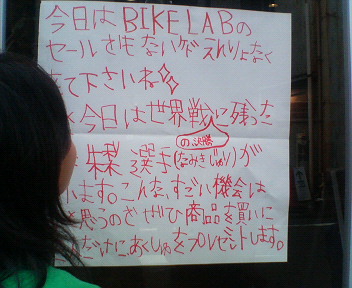 今日はBIKE LABの
セールさもないがえんりょなく
て下さいね
今日は世界戦に残った
の決勝
選手(なみきじゅり)が
います。こんな、すごい機会は
と思うのでぜひ商品を買いに
だけに、あくしゅをプレゼントします。